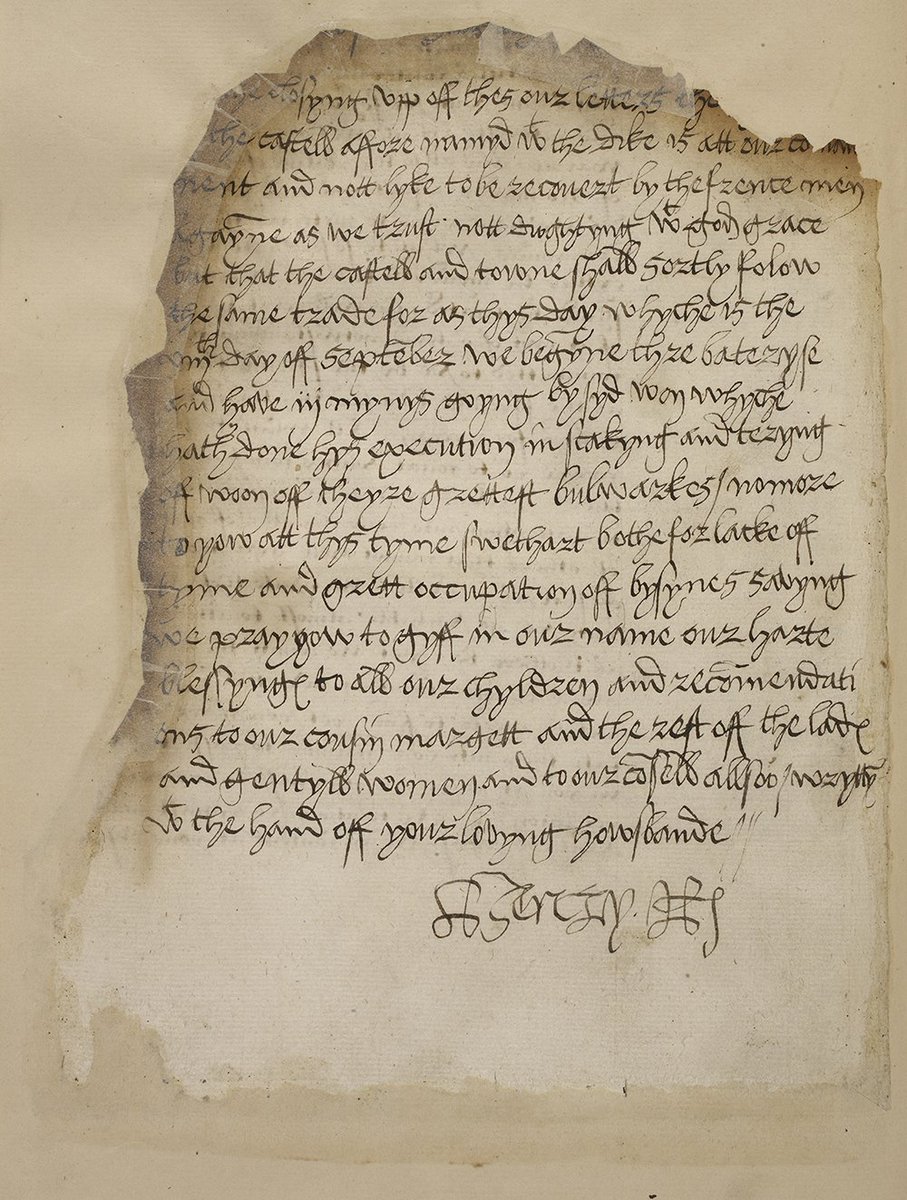 closyng upp off thes our letters the
the castell affore namyd wt the dike is att our coman
ment and nott lyke to be recovert by the frence men
agayne as we trust nott dwghtyng wt gods grace
but that the castell and towne shall sortly folow
the same trade for as thys day whyche is the
viiith day off september we begyne thre bateryse
and have iij mynys goyng by syd won whyche
hath done hys execution in scakyng and teryng
off woon off theyre grettest bulwarkes / no more
to yow att thys tyme swethart bothe for lacke off
tyme and grett occupation off bysynes savyng
we pray yow to gyff in our name our harte
blessyngs to all our chyldren and recomendati
ons to our cousin margett and the rest off the lads
and gentyll women and to our cosell allsoo / wryttn
wt the hand off your lovyng howsbande //
Henry R